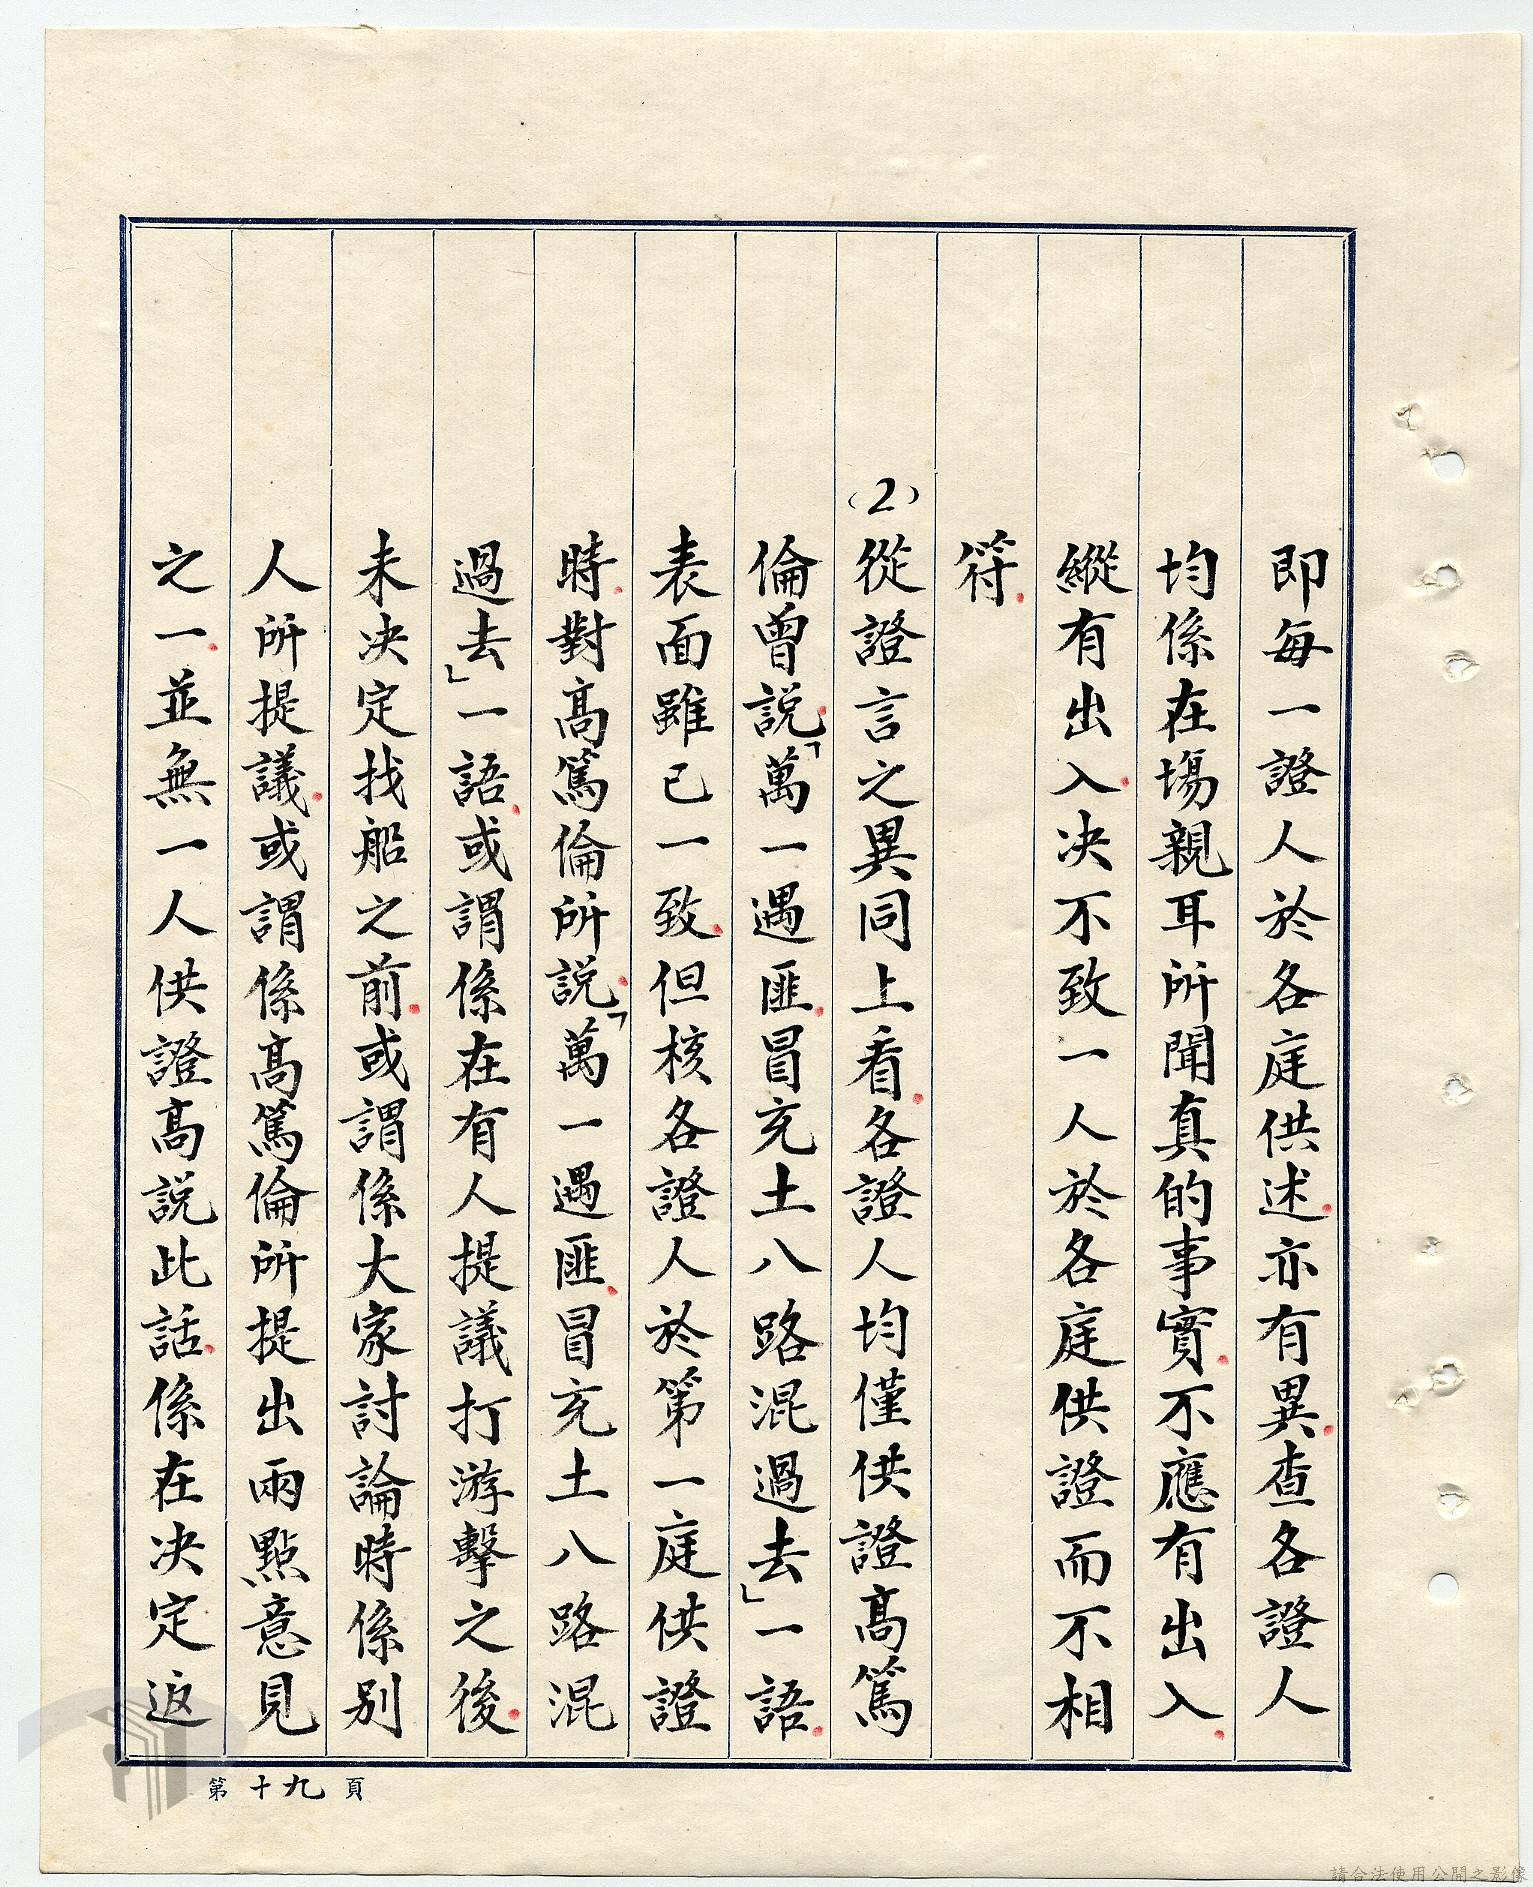 即每一證人於各庭供述.亦有異.查各證人
均係在場親耳所聞真的事實.不應有出入.
縱有出入.決不致一人於各庭供證而不相
符.
(2)從證言之異同上看.各證人均僅供證高篤
倫曾說.「萬一遇匪.冒充土八路混過去」一語.
表面雖已一致.但核各證人於第一庭供證
時.對高篤倫所說.「萬一遇匪.冒充土八路混
過去」一語.或謂係在有人提議打游擊之後.
未決定找船之前.或謂係大家討論時係別
人所提議.或謂係高篤倫所提出兩點意見
之一.並無一人供證高說此話.係在決定返
第十九頁
請合法使用公開之影像